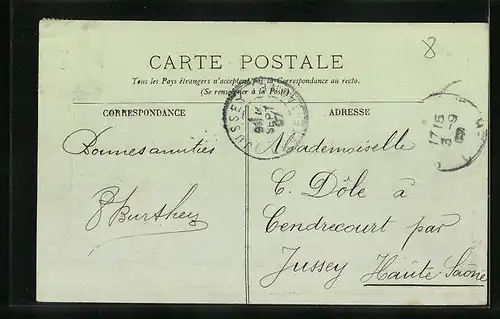 8
CARTE POSTALE
Tous les Pays étrangers n'acceptent pas la Correspondance au recto.
(Se renseigner à la Poste)
CORRESPONDANCE
Bonnes amitiés
Burthey
ADRESSE
Mademoiselle
C. Dôle à
Cendrecourt par
Jussey Haute-Saône
JUSSEY
SEPT
17 15
3 - 9